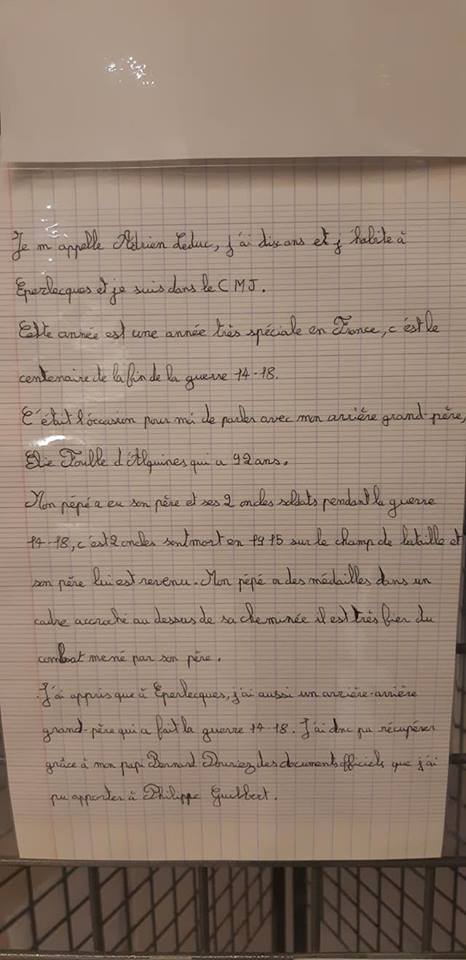 Je m'appelle Adrien Leduc, j'ai dix ans et j'habite à
Eperlecques et je suis dans le CMJ.
Cette année est une année très spéciale en France, c'est le
centenaire de la fin de la guerre 14-18.
C'était l'occasion pour moi de parler avec mon arrière grand-père,
Elie Foulle d'Alquines qui a 92 ans.
Mon pépé a eu son père et ses 2 oncles soldats pendant la guerre
14-18, c'est 2 oncles sont mort en 1915 sur le champ de bataille et
son père lui est revenu. Mon pépé a des médailles dans un
cadre accroché au dessus de sa cheminée il est très fier du
combat mené par son père.
J'ai appris que à Eperlecques, j'ai aussi un arrière-arrière
grand-père qui a fait la guerre 14-18. J'ai donc pu récupérer
grâce à mon papi Bernard Douriez des documents officiels que j'ai
pu apporter à Philippe Guilbert.